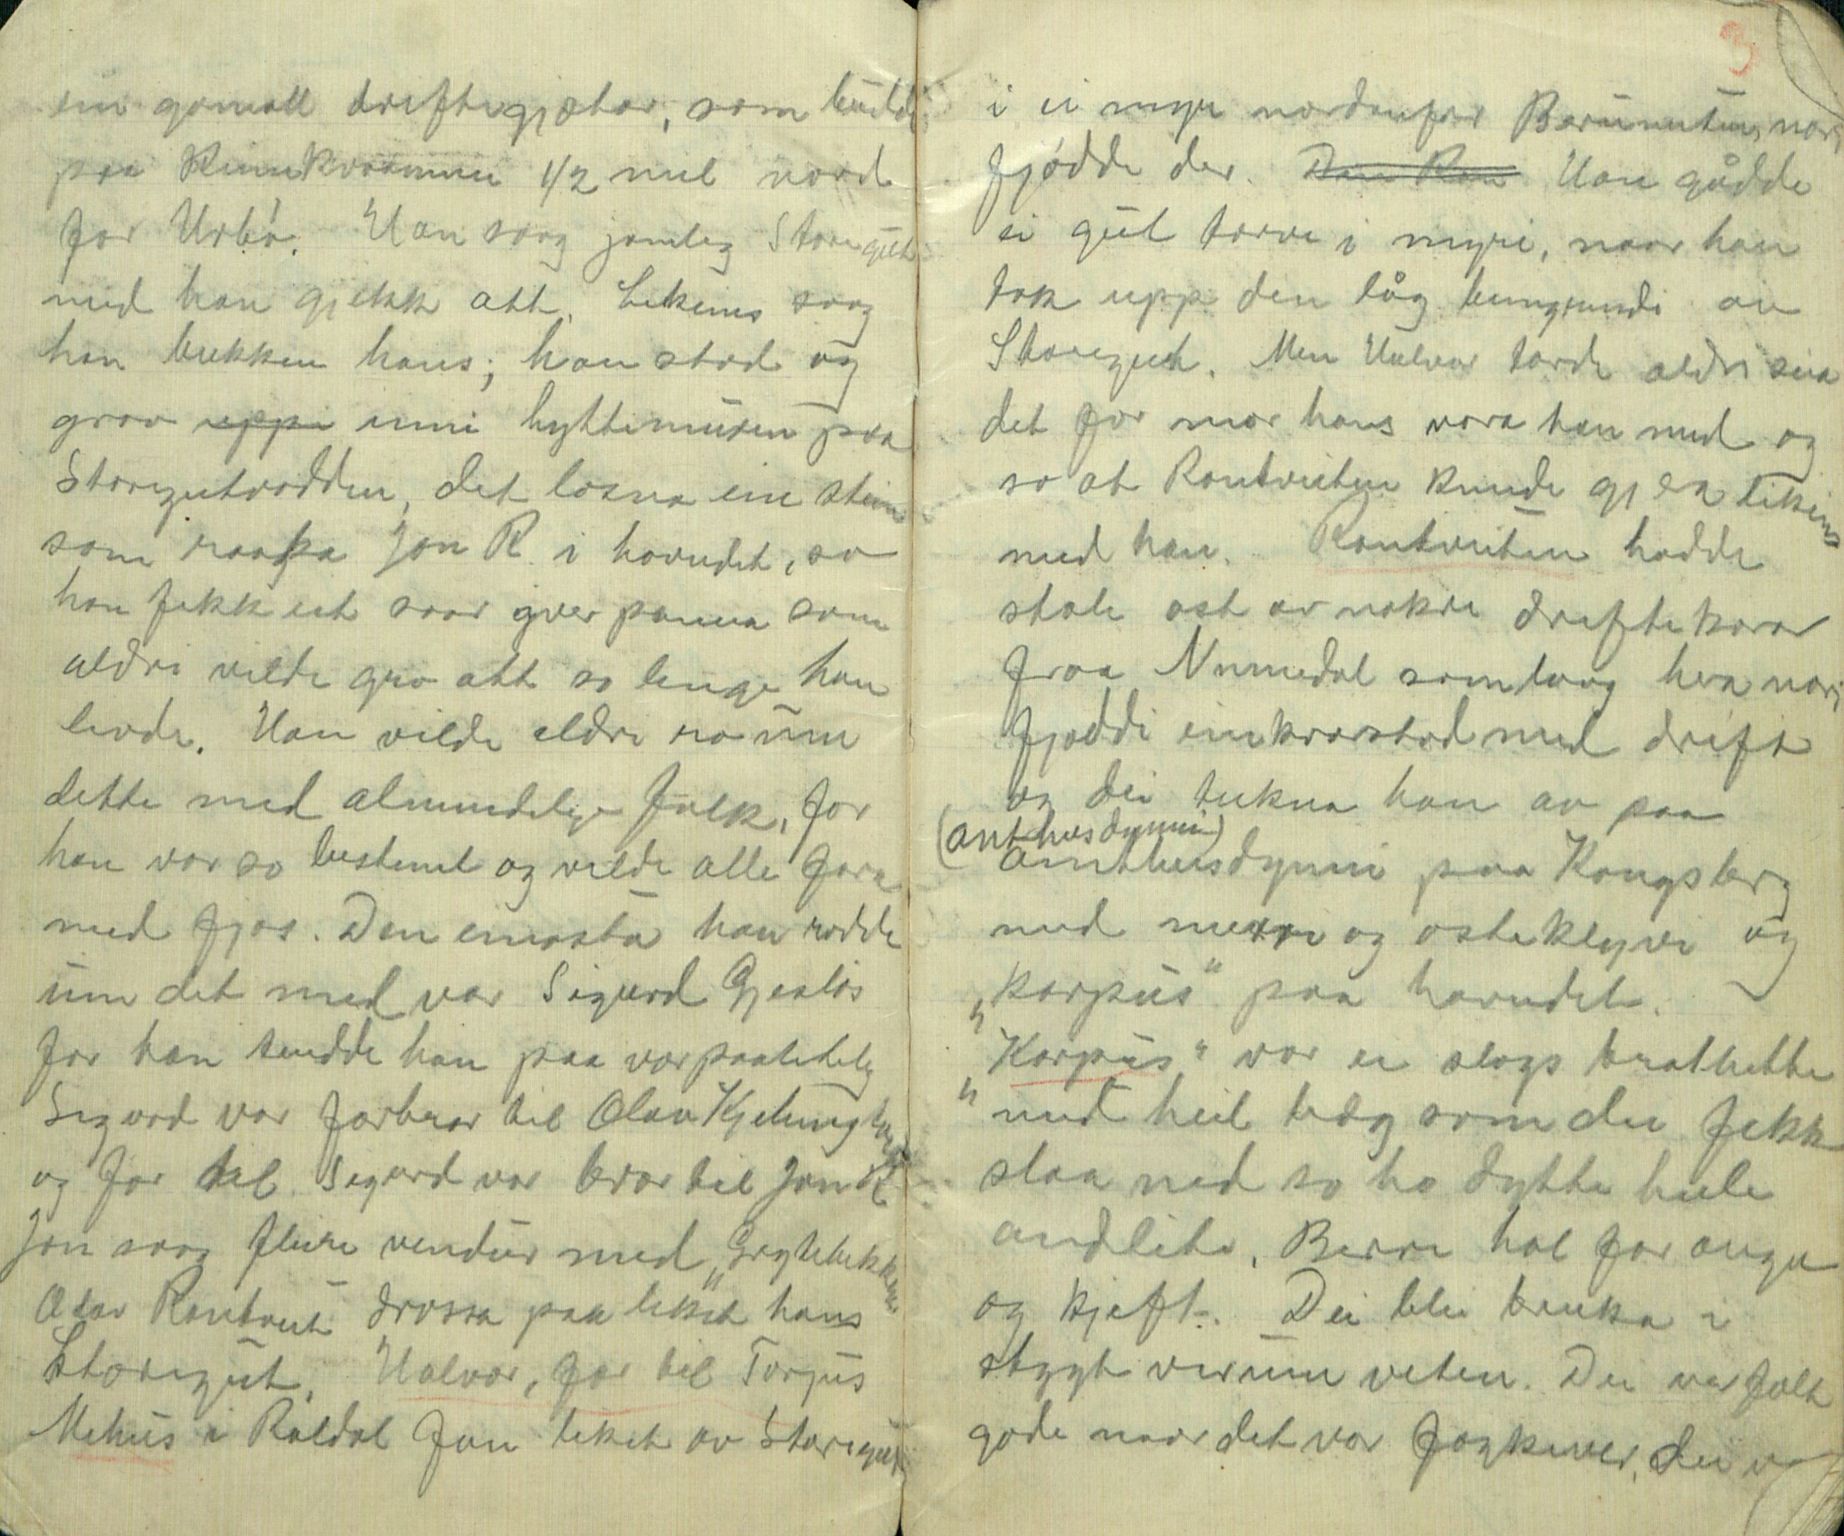 ein gamall driftegjætar, som budde
paa Kinnkvammen 1/2 mil nord
for Urbø. Han saag jamleg Storegut
med han gjekk att. Likeins saag
han bukken hans; han stod og
grov uppi inni hyttemuren paa
Storegutvodden, det losna ein stein
som raaka Jon R i hovudet, so
han fekk eit saar yver panna som
aldri vilde gro att so lenge han
levde. Han vilde aldri ro um
dette med almindelige folk, for
han var so bestemt og vilde alle fara
med fjas. Den einaste han rødde
um det med var Sigurd Gjesløs
for han trudde han paa var paaliteleg
Sigurd var farbror til Olav Kjelungtveit
og far til Sigurd var bror til Jon R
Jon saag fleire vendur med „Grytebukken"
Olav Rantveit drassa paa liket hans
Storegut. Halvor, far til Torgus
Mehus i Røldal fan liket av Storegut
3
i ei myr nordanfor Bærunuten, nor,
fjødde der. Den Ran Han gådde
ei gul torve i myri, naar han
tok upp den låg bringundi av
Storegut. Men Halvor torde aldri seia
det for mor hans vara han med og
so at Rantveiten kunde gjera likeins
med han. Rantveiten hadde
stole ost av nokre driftekarar
fraa Numedal som laag her nor,
fjødde einkvarstad med drift
og dei tukna han av paa
(anthusdynni)
amthusdynni paa Kongsberg
med merr og osteklyvi og
„korpus" paa hovudet.
„Korpus" var ei slags bratthette
„med heil bræg som dei fekk
slaa ned so ho dytte heile
andlite. Berre hol for augu
og kjeft. Dei blei bruka i
stygt ver um veten. Dei var fælt
gode naar det var fogkaver, dei